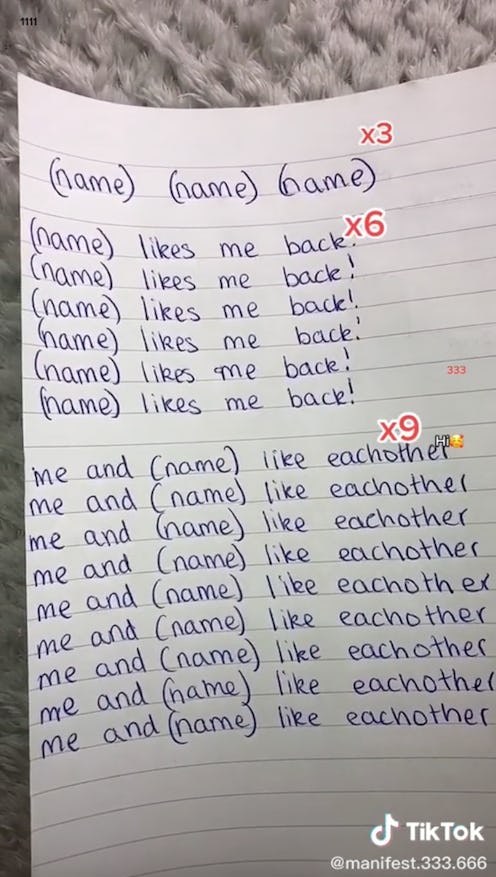 1111
x3
(name) (name) (name)
x6
(name) likes me back!
(name) likes me back!
(name) likes me back!
(name) likes me back!
(name) likes me back!
(name) likes me back!
333
x9
Hi🥰
me and (name) like eachother
me and (name) like eachother
me and (name) like eachother
me and (name) like eachother
me and (name) like eachother
me and (name) like eachother
me and (name) like eachother
me and (name) like eachother
me and (name) like eachother
TikTok
@manifest.333.666